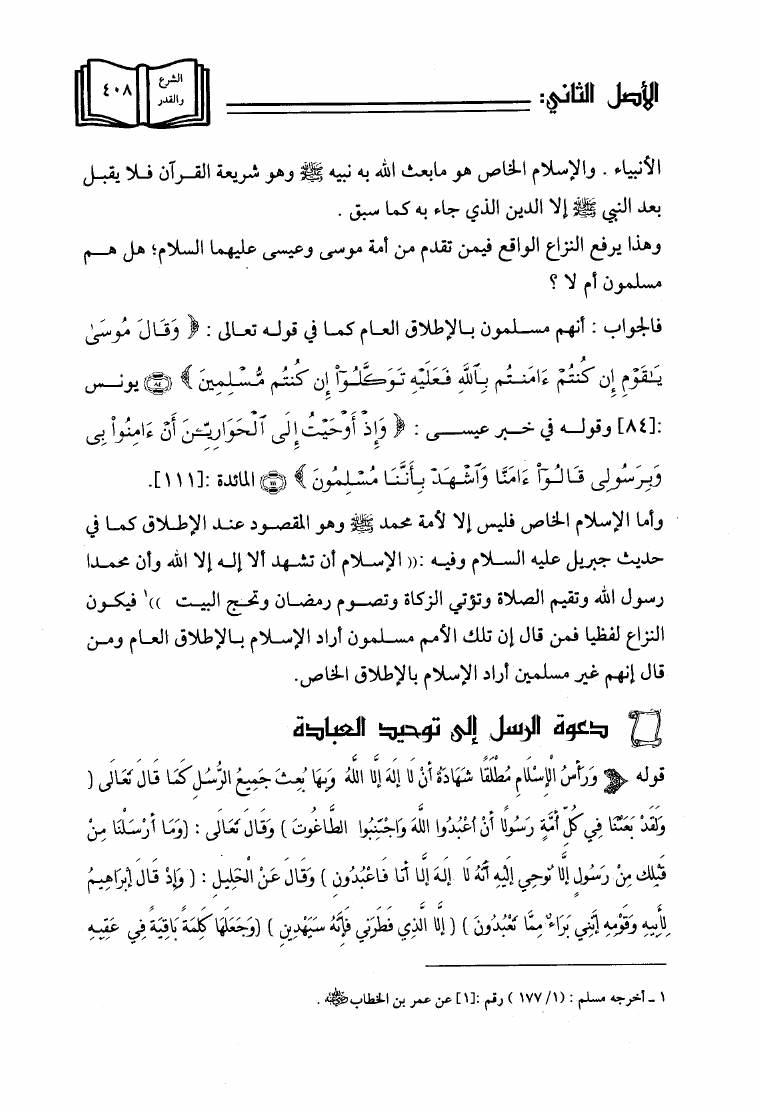 الأصل الثاني:
الشرع
والقدر
٤٠٨
الأنبياء . والإسلام الخاص هو مابعث الله به نبيه ﷺ وهو شريعة القرآن فلا يقبل
بعد النبي ﷺ إلا الدين الذي جاء به كما سبق .
وهذا يرفع النزاع الواقع فيمن تقدم من أمة موسى وعيسى عليهما السلام؛ هل هم
مسلمون أم لا ؟
فالجواب : أنهم مسلمون بالإطلاق العام كما في قوله تعالى : ﴿ وَقَالَ مُوسَىٰ
يَـٰقَوْمِ إِن كُنتُمْ ءَامَنتُم بِٱللَّهِ فَعَلَيْهِ تَوَكَّلُوٓا۟ إِن كُنتُم مُّسْلِمِينَ ﴾ ٨٤ يونس
:[٨٤] وقوله في خبر عيسى : ﴿ وَإِذْ أَوْحَيْتُ إِلَى ٱلْحَوَارِيِّـۧنَ أَنْ ءَامِنُوا۟ بِى
وَبِرَسُولِى قَالُوٓا۟ ءَامَنَّا وَٱشْهَدْ بِأَنَّنَا مُسْلِمُونَ ﴾ ١١١ المائدة :[١١١].
وأما الإسلام الخاص فليس إلا لأمة محمد ﷺ وهو المقصود عند الإطلاق كما في
حديث جبريل عليه السلام وفيه :(( الإسلام أن تشهد ألا إله إلا الله وأن محمدا
رسول الله وتقيم الصلاة وتؤتي الزكاة وتصوم رمضان وتحج البيت ))١ فيكون
النزاع لفظيا فمن قال إن تلك الأمم مسلمون أراد الإسلام بالإطلاق العام ومن
قال إنهم غير مسلمين أراد الإسلام بالإطلاق الخاص.
دعوة الرسل إلى توحيد العبادة
قوله وَرَأْسُ الْإِسْلَامِ مُطْلَقًا شَهَادَةُ أَنْ لَا إِلَهَ إِلَّا اللَّهُ وَبِهَا بُعِثَ جَمِيعُ الرُّسُلِ كَمَا قَالَ تَعَالَى (
وَلَقَدْ بَعَثْنَا فِي كُلِّ أُمَّةٍ رَسُولًا أَنْ اُعْبُدُوا اللَّهَ وَاجْتَنِبُوا الطَّاغُوتَ ) وَقَالَ تَعَالَى : (وَمَا أَرْسَلْنَا مِنْ
قَبْلِك مِنْ رَسُولٍ إلَّا نُوحِي إلَيْهِ أَنَّهُ لَا إلَهَ إلَّا أَنَا فَاعْبُدُونِ ) وَقَالَ عَنْ الْخَلِيلِ : ( وَإِذْ قَالَ إبْرَاهِيمُ
لِأَبِيهِ وَقَوْمِهِ إنَّنِي بَرَاءٌ مِمَّا تَعْبُدُونَ ) ( إلَّا الَّذِي فَطَرَنِي فَإِنَّهُ سَيَهْدِينِ ) (وَجَعَلَهَا كَلِمَةً بَاقِيَةً فِي عَقِبِهِ
١ ـ أخرجه مسلم : (١/ ١٧٧ ) رقم :[١] عن عمر بن الخطاب ﷺ .